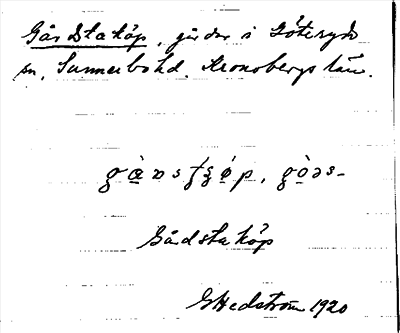 Gårdstaköp, gårdar i Göteryds
sn, Sunnerbo hd. Kronobergs län.
Gårdsta köp
GHedström 1920